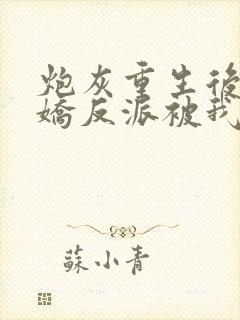 炮灰重生後
嬌反派被我
蘇小青